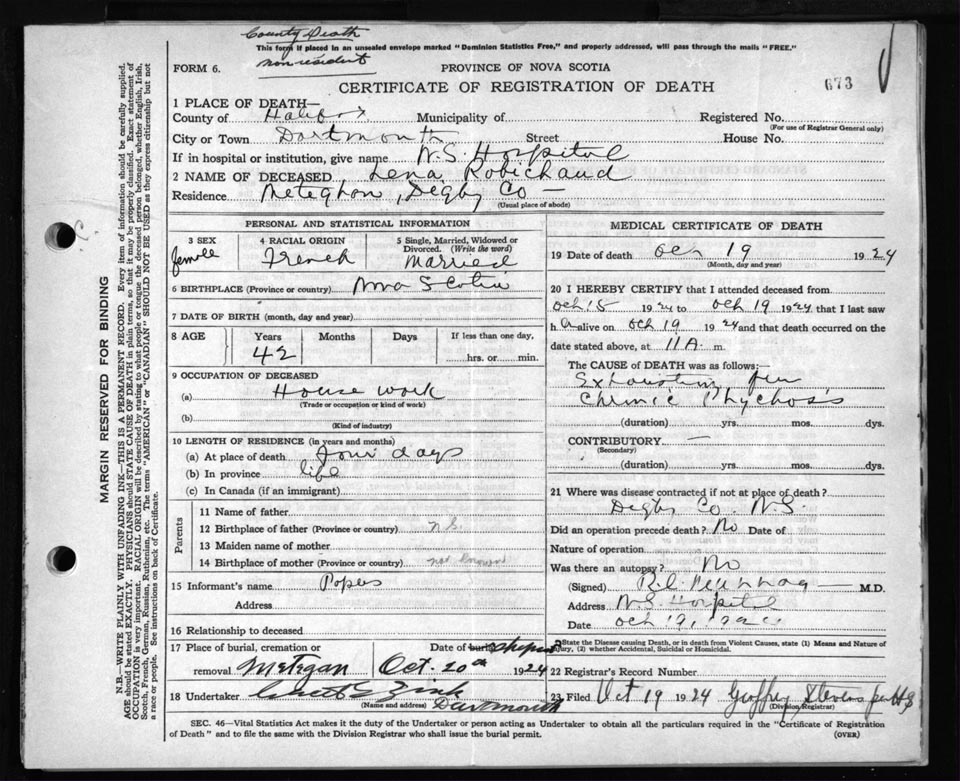 County Death
This form if placed in an unsealed envelope marked "Dominion Statistics Free," and properly addressed, will pass through the mails "FREE."
non resident
FORM 6.
PROVINCE OF NOVA SCOTIA
CERTIFICATE OF REGISTRATION OF DEATH
673
1 PLACE OF DEATH—
County of Halifax Municipality of Registered No.
(For use of Registrar General only)
City or Town Dartmouth Street House No.
If in hospital or institution, give name N.S. Hospital
2 NAME OF DECEASED Lena Robichaud
Residence Meteghan, Digby Co —
(Usual place of abode)
PERSONAL AND STATISTICAL INFORMATION
3 SEX
female
4 RACIAL ORIGIN
French
5 Single, Married, Widowed or
Divorced. (Write the word)
Married
6 BIRTHPLACE (Province or country) Nova Scotia
7 DATE OF BIRTH (month, day and year)
8 AGE Years Months Days If less than one day,
42 hrs. or min.
9 OCCUPATION OF DECEASED
(a) House work
(Trade or occupation or kind of work)
(b)
(Kind of industry)
10 LENGTH OF RESIDENCE (in years and months)
(a) At place of death four days
(b) In province life
(c) In Canada (if an immigrant)
Parents
11 Name of father
12 Birthplace of father (Province or country) N.S.
13 Maiden name of mother
14 Birthplace of mother (Province or country) not known
15 Informant's name Papers
Address
16 Relationship to deceased
17 Place of burial, cremation or Date of burial shipment
removal Metegan Oct. 20th 1924
18 Undertaker Zink
(Name and address) Dartmouth
MEDICAL CERTIFICATE OF DEATH
19 Date of death Oct 19 1924
(Month, day and year)
20 I HEREBY CERTIFY that I attended deceased from
Oct 15 1924 to Oct 19 1924 that I last saw
h er alive on Oct 19 1924 and that death occurred on the
date stated above, at 11 A. m.
The CAUSE OF DEATH was as follows:
Exhaustion from
Chronic Phychoss
(duration) yrs. mos. dys.
CONTRIBUTORY —
(Secondary)
(duration) yrs. mos. dys.
21 Where was disease contracted if not at place of death?
Digby Co. N.S.
Did an operation precede death? No Date of
Nature of operation
Was there an autopsy? No
(Signed) M.D.
Address N.S. Hospital
Date Oct 19, 1924
State the Disease causing Death, or in death from Violent Causes, state (1) Means and Nature of
Injury, (2) whether Accidental, Suicidal or Homicidal.
22 Registrar's Record Number
23 Filed Oct 19 1924 Geoffrey Stevens per HS
(Division Registrar)
SEC. 46—Vital Statistics Act makes it the duty of the Undertaker or person acting as Undertaker to obtain all the particulars required in the "Certificate of Registration
of Death" and to file the same with the Division Registrar who shall issue the burial permit.
(OVER)
MARGIN RESERVED FOR BINDING
N.B.—WRITE PLAINLY WITH UNFADING INK—THIS IS A PERMANENT RECORD. Every item of information should be carefully supplied.
AGE should be stated EXACTLY. PHYSICIANS should STATE CAUSE OF DEATH in plain terms, so that it may be properly classified. Exact statement of
OCCUPATION is very important. RACIAL ORIGIN will be described by stating to what people or tongue the deceased person belonged, whether English, Irish,
Scotch, French, German, Russian, Ruthenian, etc. The terms "AMERICAN" or "CANADIAN" SHOULD NOT BE USED as they express citizenship but not
a race or people. See instructions on back of Certificate.